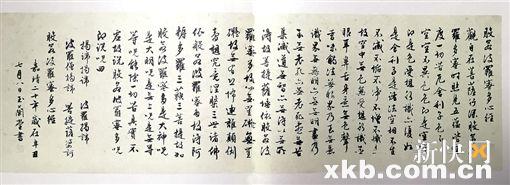 般若波羅蜜多心經
觀自在菩薩行深般若波
羅蜜多時照見五蘊皆空
度一切苦厄舍利子色不異
空空不異色色即是空空即
是色受想行識亦復如
是舍利子是諸法空相不生
不滅不垢不淨不增不減是
故空中無色無受想行識無
眼耳鼻舌身意無色聲香
味觸法無眼界乃至無意
識界無無明亦無無明盡乃
至無老死亦無老死盡無苦
集滅道無智亦無得以無所
得故菩提薩埵依般若波
羅蜜多故心無罣礙無罣
礙故無有恐怖遠離顛倒
夢想究竟涅槃三世諸佛
依般若波羅蜜多故得阿
耨多羅三藐三菩提故知
般若波羅蜜多是大神咒
是大明咒是無上咒是無等
等咒能除一切苦真實不
虛故說般若波羅蜜多咒
即說咒曰
揭諦揭諦 波羅揭諦
波羅僧揭諦 菩提薩婆訶
般若波羅蜜多心經
嘉靖二十年歲在辛丑
七月八日玉蘭堂書
新快网
xkb.com.cn